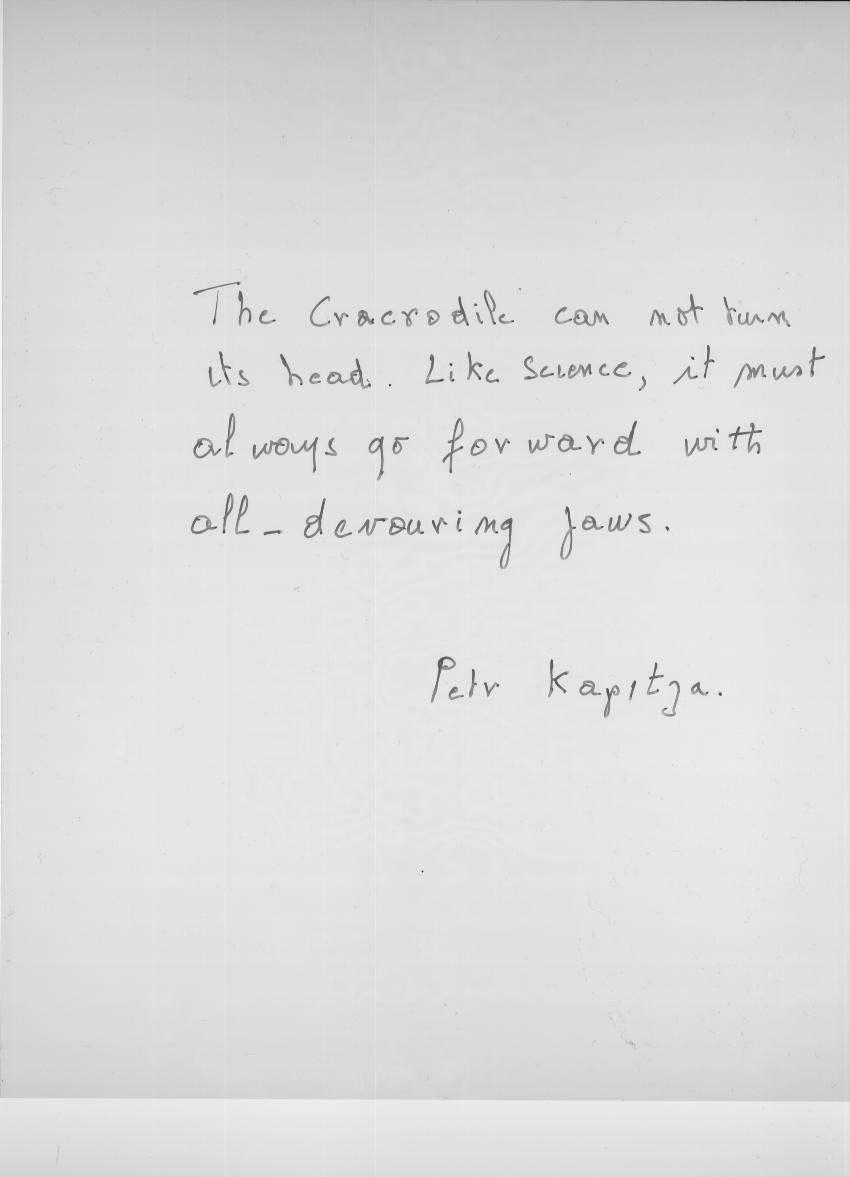 The Cracrodile can not turn
its head. Like Science, it must
always go forward with
all-devouring jaws.
Petr Kapitza.